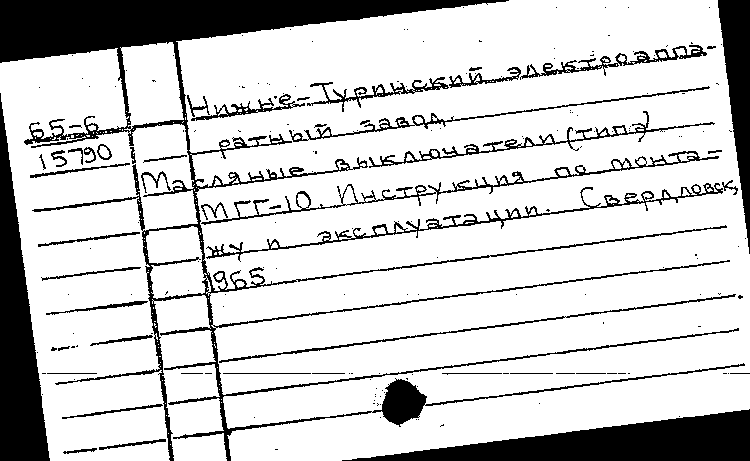 Нижне-Туринский электроаппа-
65-6 ратный завод.
15790
Масляные выключатели (типа)
МГГ-10. Инструкция по монта-
жу и эксплуатации. Свердловск,
1965